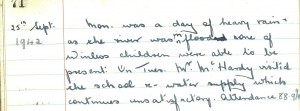 71
25th Sept. 1962
Mon. was a day of heavy rain -
as the river was in flood none of
Winless children were able to be
present. On Tues. Mr. McHardy visited
the school re water supply which
continues unsatisfactory. Attendance 88.9%